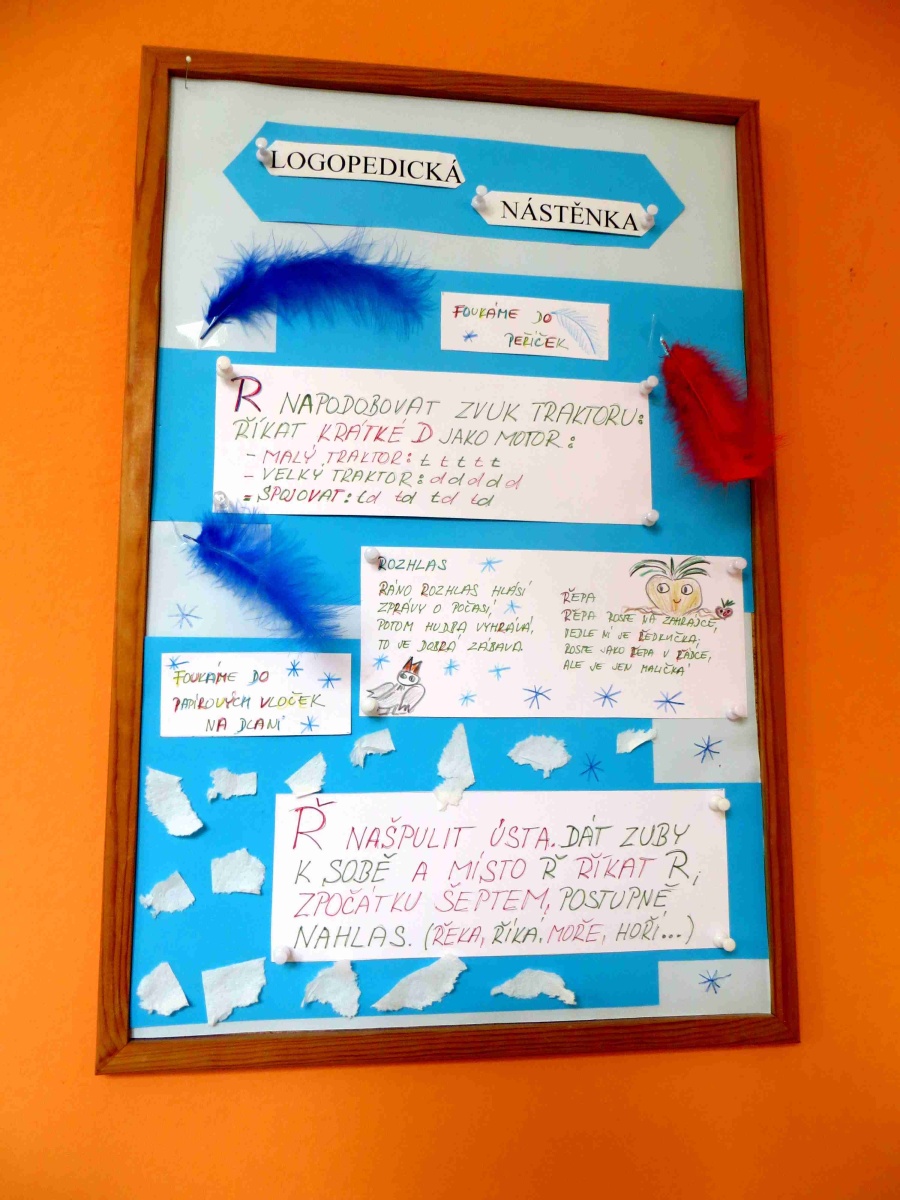 LOGOPEDICKÁ
NÁSTĚNKA
FOUKÁME DO
PEŘÍČEK
R NAPODOBOVAT ZVUK TRAKTORU:
ŘÍKAT KRÁTKÉ D JAKO MOTOR:
- MALÝ TRAKTOR: t t t t t
- VELKÝ TRAKTOR: d d d d d
= SPOJOVAT: td td td td
ROZHLAS
RÁNO ROZHLAS HLÁSÍ
ZPRÁVY O POČASÍ,
POTOM HUDBA VYHRÁVÁ,
TO JE DOBRÁ ZÁBAVA.
ŘEPA
ŘEPA ROSTE NA ZAHRÁDCE,
VEDLE NÍ JE ŘEDKVIČKA,
ROSTE JAKO ŘEPA V ŘÁDCE,
ALE JE JEN MALIČKÁ
FOUKÁME DO
PAPÍROVÝCH VLOČEK
NA DLANI
Ř NAŠPULIT ÚSTA. DÁT ZUBY
K SOBĚ A MÍSTO Ř ŘÍKAT R,
ZPOČÁTKU ŠEPTEM, POSTUPNĚ
NAHLAS. (ŘEKA, ŘÍKÁ, MOŘE, HOŘÍ...)